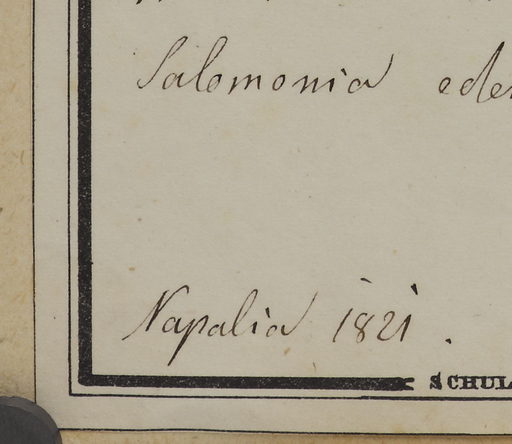 Salomonia eden
Napalia 1821.
SCHUL